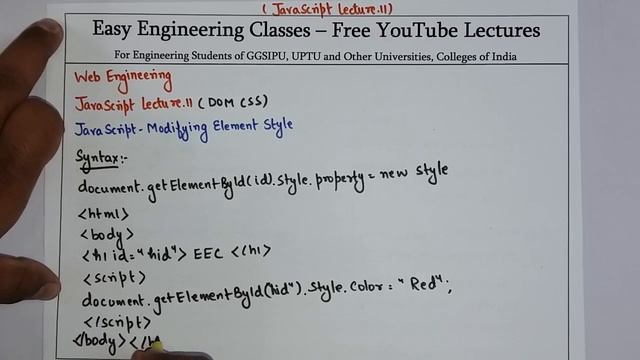 ( JavaScript Lecture.11)
Easy Engineering Classes – Free YouTube Lectures
For Engineering Students of GGSIPU, UPTU and Other Universities, Colleges of India
Web Engineering
JavaScript Lecture.11 (DOM CSS)
JavaScript - Modifying Element Style
Syntax:-
document.getElementById(id).style.property = new style
<html>
<body>
<h1 id="hid"> EEC </h1>
<script>
document.getElementById(hid").style.color = "Red";
</script>
</body></h